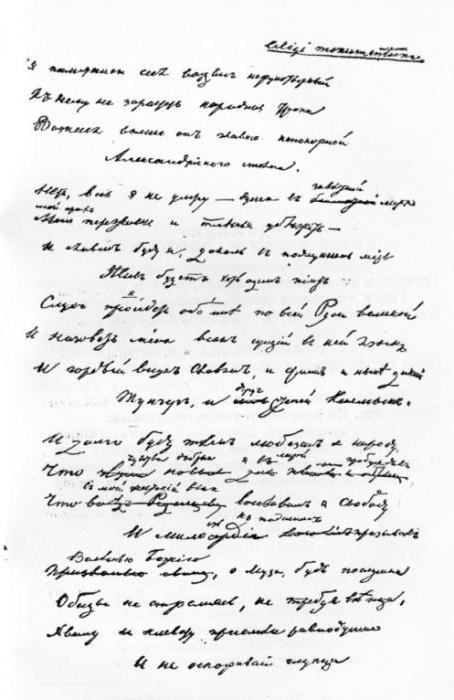 Exegi monumentum
Я памятникъ себѣ воздвигъ нерукотворный
Къ нему не заростетъ народная тропа
Вознесся выше онъ главою непокорной
Александрійскаго столпа.
завѣтной
Нѣтъ, весь я не умру — душа въ безсмертной лирѣ
мой прахъ
Меня переживетъ и тлѣнья убѣжитъ —
И славенъ буду я, доколь въ подлунномъ мірѣ
Живъ будетъ хоть одинъ піитъ
Слухъ пройдетъ обо мнѣ по всей Руси великой
И назоветъ меня всякъ сущій въ ней языкъ
И гордый внукъ Славянъ, и Финнъ, и нынѣ дикій
другъ
Тунгузъ, и степей Калмыкъ.
И долго буду тѣмъ любезенъ я народу,
чувства добрыя я лирой пробуждалъ
Что звуки новые для пѣсенъ
въ мой жестокій вѣкъ
Что вслѣдъ Радищеву возславилъ я Свободу
къ падшимъ
И милосердіе призывалъ
Велѣнью Божію
Призванью своему, о Муза, будь послушна
Обиды не страшась, не требуя вѣнца,
Хвалу и клевету пріемли равнодушно
И не оспоривай глупца